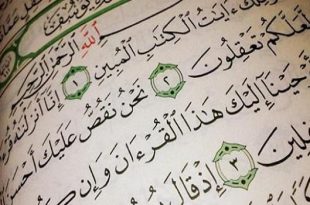 يُوسُفَ
ٱللَّهِ ٱلرَّحْمَٰنِ
ءَايَٰتُ ٱلْكِتَٰبِ ٱلْمُبِينِ ١ إِنَّآ أَنزَلْنَٰهُ
لَّعَلَّكُمْ تَعْقِلُونَ ٢ نَحْنُ نَقُصُّ عَلَيْكَ أَحْسَنَ
حَيْنَآ إِلَيْكَ هَٰذَا ٱلْقُرْءَانَ وَإِن
فِلِينَ ٣ إِذْ قَالَ